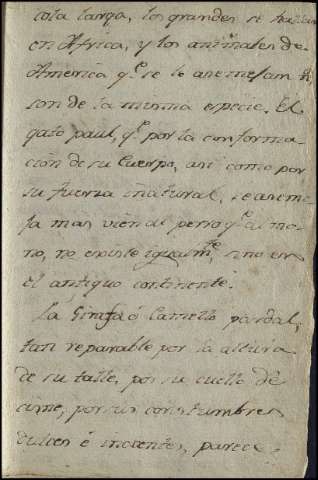 cola larga, los grandes se hallan
en Africa, y los animales de
America q.e se le asemejan n
son de la misma especie. El
gato paul, q.e por la conforma
cion de su Cuerpo, asi como por
su fuerza inatural, se aseme
ja mas vien al perro q.e al mo
no, no existe igualm.te sino en
el antiguo continente.
La Girafa ó Camello pardal,
tan reparable por la altura
de su talle, por su cuello de
cisne, por sus constumbres
dulces é inocentes, parece